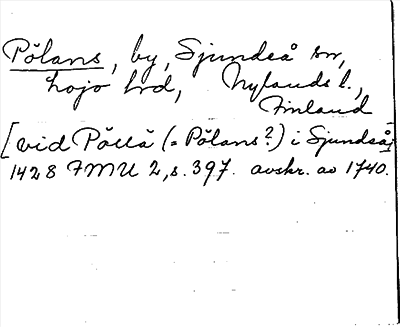 Pölans, by, Sjundeå sn,
Lojo hrd, Nylands l.,
Finland
[vid Pållå (= Pölans?) i Sjundeå]
1428 FMU 2, s. 397. avskr. av 1740.